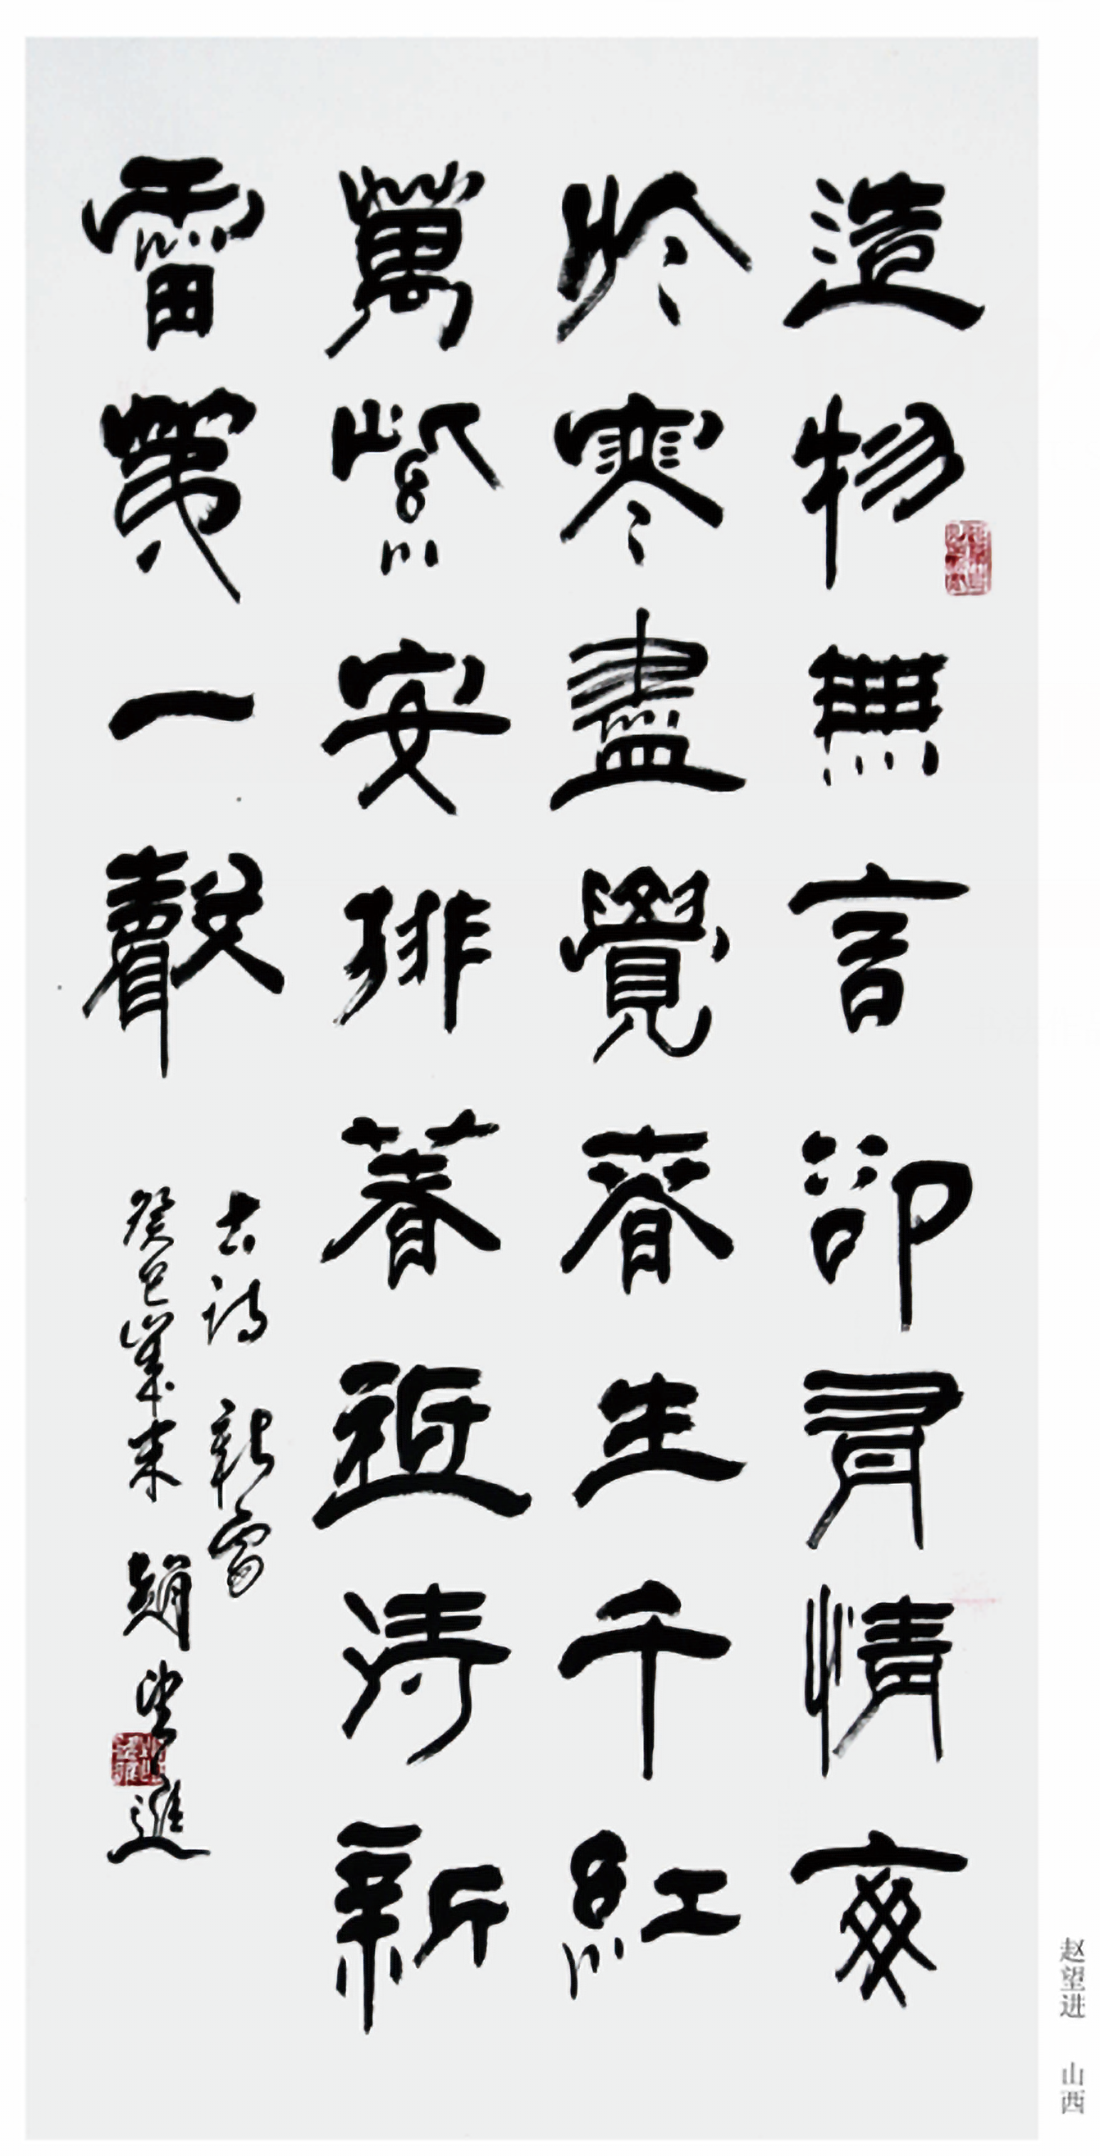 造物無言卻有情每
於寒盡覺春生千紅
萬紫安排著祗待新
雷第一聲
古詩 新雷
癸巳歲末 趙望進
赵望进 山西